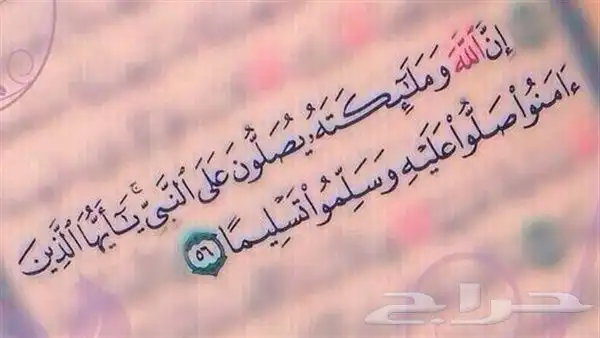 إِنَّ ٱللَّهَ وَمَلَـٰٓئِكَتَهُۥ يُصَلُّونَ عَلَى ٱلنَّبِىِّ ۚ يَـٰٓأَيُّهَا ٱلَّذِينَ
ءَامَنُوا۟ صَلُّوا۟ عَلَيْهِ وَسَلِّمُوا۟ تَسْلِيمًا ٥٦
حراج